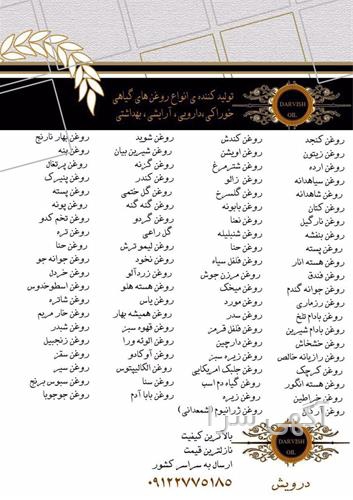 تولید کننده ی انواع روغن های گیاهی
خوراکی،دارویی، آرایشی، بهداشتی
DARVISH
OIL
روغن کنجد
روغن زیتون
روغن ارده
روغن سیاهدانه
روغن شاهدانه
روغن کتان
روغن نارگیل
روغن بنفشه
روغن پسته
روغن هسته انار
روغن فندق
روغن جوانه گندم
روغن رزماری
روغن بادام تلخ
روغن بادام شیرین
روغن خشخاش
روغن رازیانه خالص
روغن کرچک
روغن هسته انگور
روغن خراطین
روغن آردن
روغن کندش
روغن آویشن
روغن شترمرغ
روغن زالو
روغن گلسرخ
روغن بابونه
روغن نعنا
روغن شنبلیله
روغن حنا
روغن فلفل سیاه
روغن مرزن جوش
روغن میخک
روغن مورد
روغن سدر
روغن فلفل قرمز
روغن دارچین
روغن زیره سبز
روغن جلبک آمریکایی
روغن گیاه دم اسب
روغن زیره
روغن ژرانیوم (شمعدانی)
روغن شوید
روغن شیرین بیان
روغن گزنه
روغن کندر
روغن گل ختمی
روغن گنه گنه
روغن گردو
گل راعی
روغن لیمو ترش
روغن نخود
روغن زردآلو
روغن هسته هلو
روغن یاس
روغن همیشه بهار
روغن قهوه سبز
روغن آلوئه ورا
روغن آوکادو
روغن اکالیپتوس
روغن سنا
روغن بابا آدم
روغن بهار نارنج
روغن بنه
روغن پرتغال
روغن پنیرک
روغن پسته
روغن پونه
روغن تخم کدو
روغن تره
روغن حنا
روغن جوانه جو
روغن خردل
روغن اسطوخدوس
روغن شاتره
روغن خار مریم
روغن شبدر
روغن زنجبیل
روغن سقز
روغن سیر
روغن سبوس برنج
روغن جوجوبا
آگهی سرا
بالاترین کیفیت
نازلترین قیمت
ارسال به سراسر کشور
DARVISH
OIL
درویش ۰۹۱۲۲۷۷۵۱۸۵